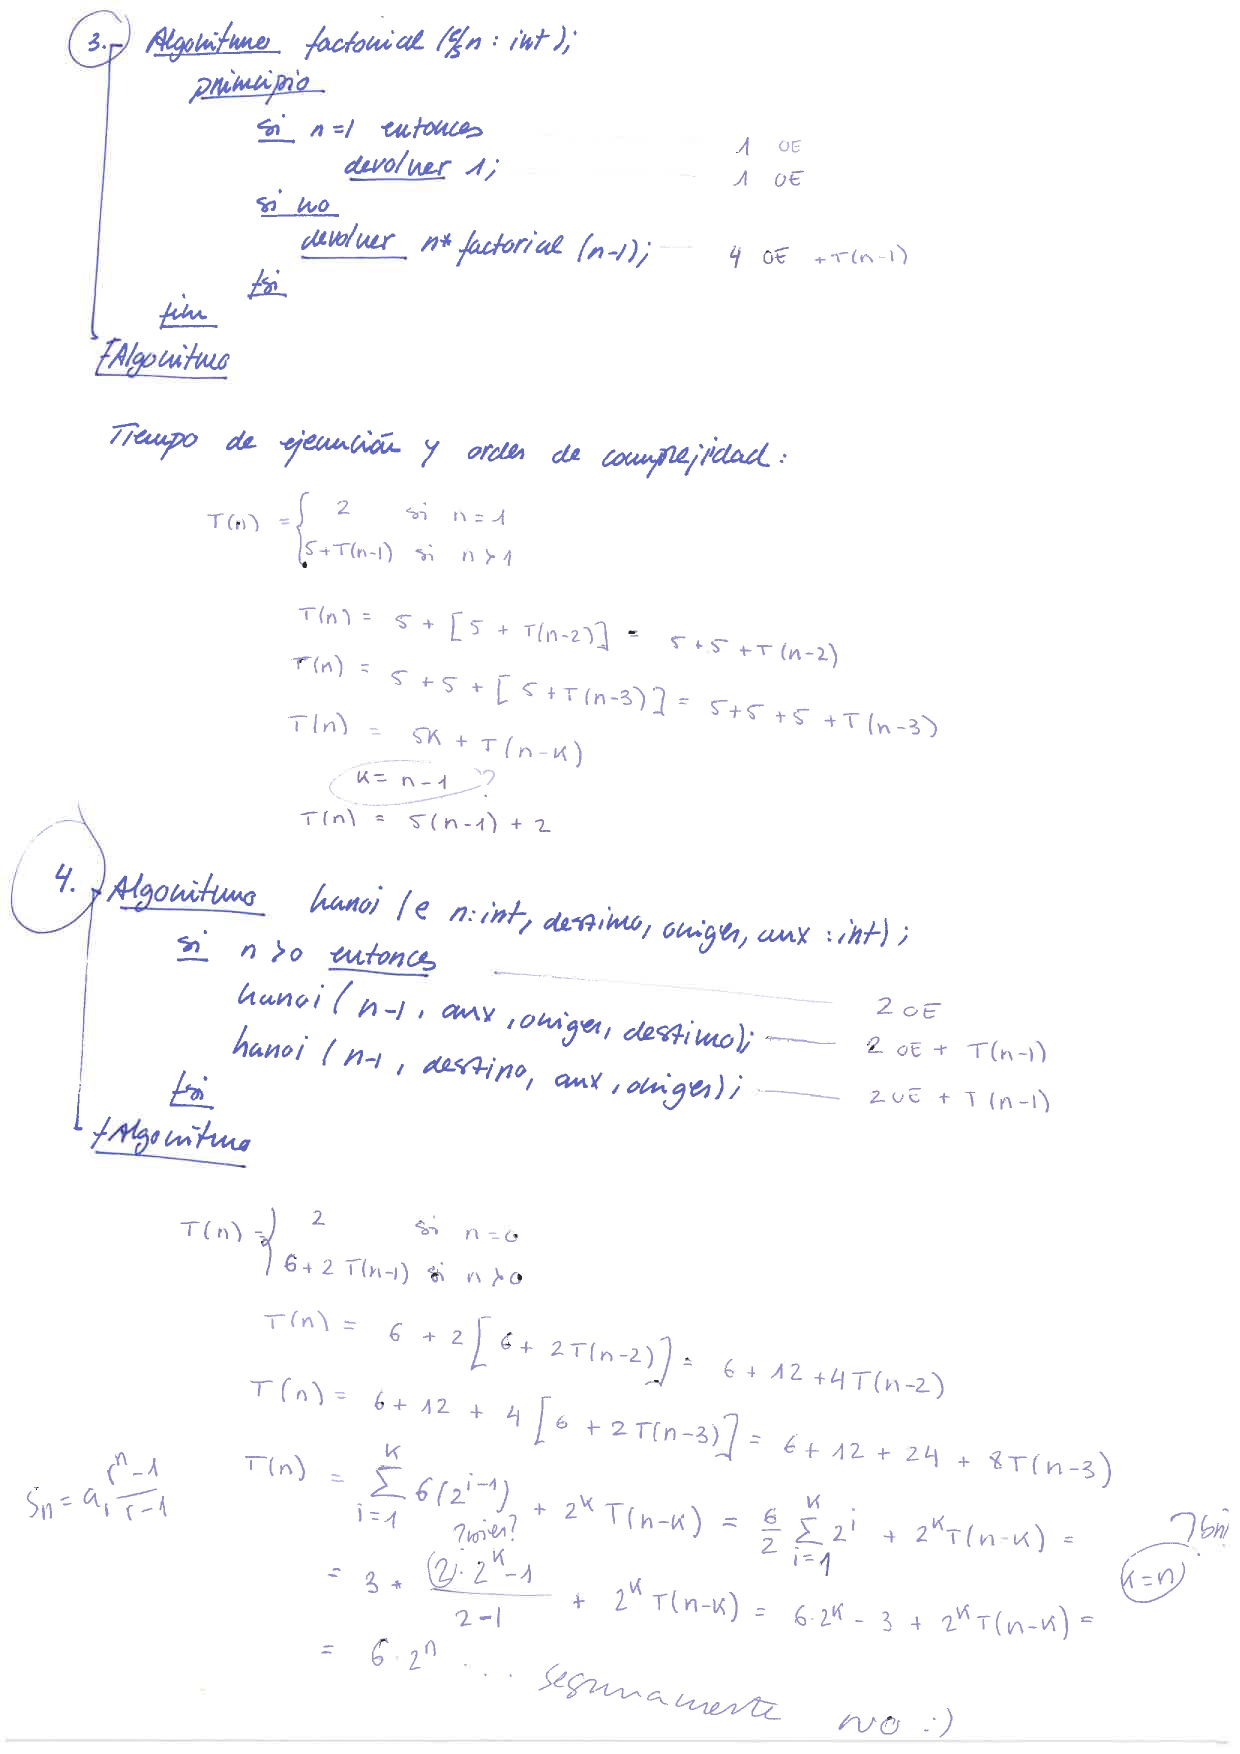 3. Algoritmo factorial (e/s n : int);
principio
si n=1 entonces 1 OE
devolver 1; 1 OE
si no
devolver n* factorial (n-1); 4 OE + T(n-1)
fsi
fin
fAlgoritmo
Tiempo de ejecución y orden de complejidad:
T(n) = { 2 si n = 1
5+T(n-1) si n > 1
T(n) = 5 + [5 + T(n-2)] = 5+5 +T(n-2)
T(n) = 5 + 5 + [5+T(n-3)] = 5+5 +5 +T(n-3)
T(n) = 5K + T(n-K)
K = n-1 ?
T(n) = 5(n-1) + 2
4. Algoritmo hanoi (e n:int, destino, origen, aux : int);
si n>0 entonces 2 OE
hanoi ( n-1, aux, origen, destino); 2 OE + T(n-1)
hanoi ( n-1, destino, aux, origen); 2 OE + T(n-1)
fsi
fAlgoritmo
T(n) = { 2 si n=0
6+2 T(n-1) si n>0
T(n) = 6 + 2 [6 + 2T(n-2)] = 6 + 12 +4T(n-2)
T(n) = 6+ 12 + 4 [6 + 2T(n-3)] = 6+12 + 24 + 8T(n-3)
Sn = a₁ rⁿ-1 / r-1 T(n) = Σ i=1 K 6(2^i-1) + 2^K T(n-K) = 6/2 Σ i=1 K 2^i + 2^K T(n-K) =
= 3 * (2)·2^K-1 / 2-1 + 2^K T(n-K) = 6·2^K - 3 + 2^K T(n-K) = K=n
= 6·2ⁿ ... seguramente no :)